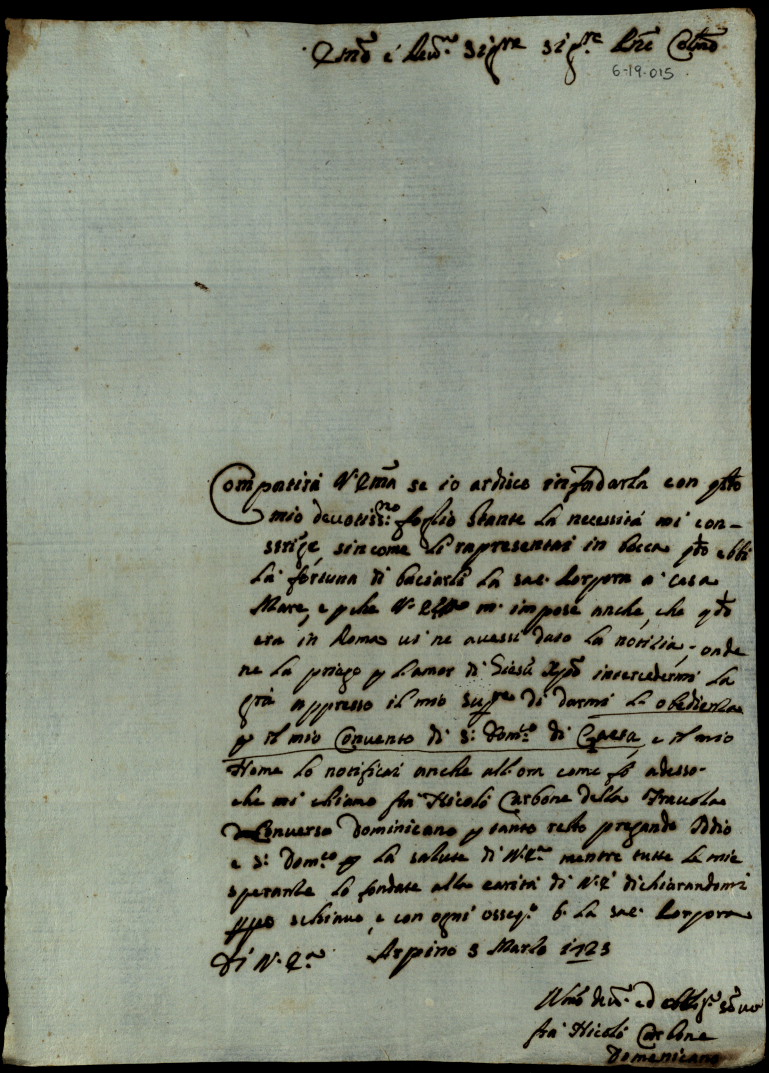 Emo e Revmo Sigre Sigre Pne Colmo
6-19-015
Compatirà V. Ema se io ardisco infadarla con qsto
mio devotissmo foglio stante la necessità mi con-
stringe, sincome li rapresentai in bocca qdo ebbi
la fortuna di baciarli la sac. Porpora a Casa
Mare, e pche V. Ema m'impose anche, che qdo
era in Roma ci ne avessi dato la notizia, onde
ne la priego p l'amor di Giesù Xpo intercedermi la
gra appresso il mio Supre di darmi la obedienza
p il mio Convento di S. Domco di Gaeta, e il mio
Nome lo notificai anche all'ora come fò adesso
che mi chiamo fra Nicolò Carbone della Fravola
Converso Dominicano p tanto resto pregando Iddio
e S. Domco p la salute di V. Ema mentre tutte le mie
speranze lo fondate alla carità di V. E. dichiarandomi
schiavo, e con ogni osseqo b. la sac. Porpora
di V. Ema Arpino 3 Marzo 1723
Umo devmo ed obligmo servo
fra Nicolò Carbone
Domenicano